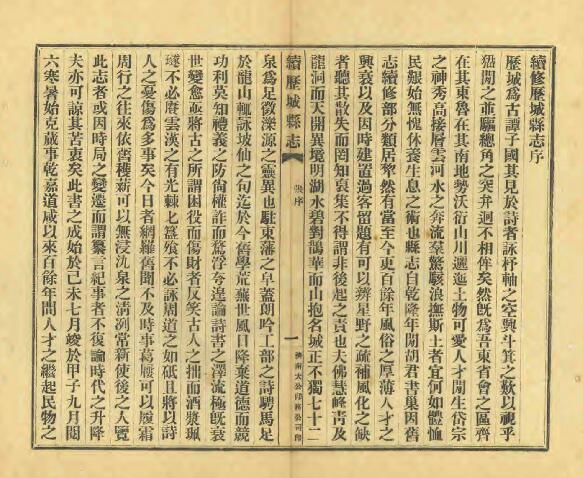 續修歷城縣志序
歷城爲古譚子國其見於詩者詠杼軸之空興斗箕之歎以視乎
猺閒之並驅總角之突弁迥不相侔矣然旣爲吾東省會之區齊
在其東魯在其南地勢沃衍山川邐迤土物可愛人才閒生岱宗
之神秀高接層雲河水之奔流羣驚駭浪撫斯土者宜何如體恤
民艱始無愧休養生息之術也縣志自乾隆年閒胡君書巢因舊
志續修部分類居犂然有當至今更百餘年風俗之厚薄人才之
興衰以及因時建置過客留題有可以辨星野之疏補風化之缺
者聽其散失而罔知裒集不得謂非後起之責也夫佛慧峰靑及
龍洞而天開異境明湖水碧對鵲華而山抱名城正不獨七十二
續歷城縣志
序
一
濟南大公印務公司印
泉爲足徵濼源之靈異也駐東藩之皁蓋朗吟工部之詩騁馬足
於龍山輒詠坡仙之句迄於今舊學荒蕪世風日降棄道德而競
功利莫知禮義之防尙權詐而騖浮夸遑論詩書之澤流極旣衰
世變愈亟將古之所謂困役而傷財者反笑古人之拙而酒漿珮
璲不必賡雲漢之有光棘匕簋飧不必詠周道之如砥且將以詩
人之憂傷爲多事矣今日者網羅舊聞不及時事葛屨可以履霜
周行之往來依舊穫薪可以無浸氿泉之淸洌常新使後之人覽
此志者或因時局之變遷而謂纂言紀事者不復論時代之升降
夫亦可諒其苦衷矣此書之成始於己未七月竣於甲子九月閱
六寒暑始克蕆事乾嘉道咸以來百餘年間人才之繼起民物之